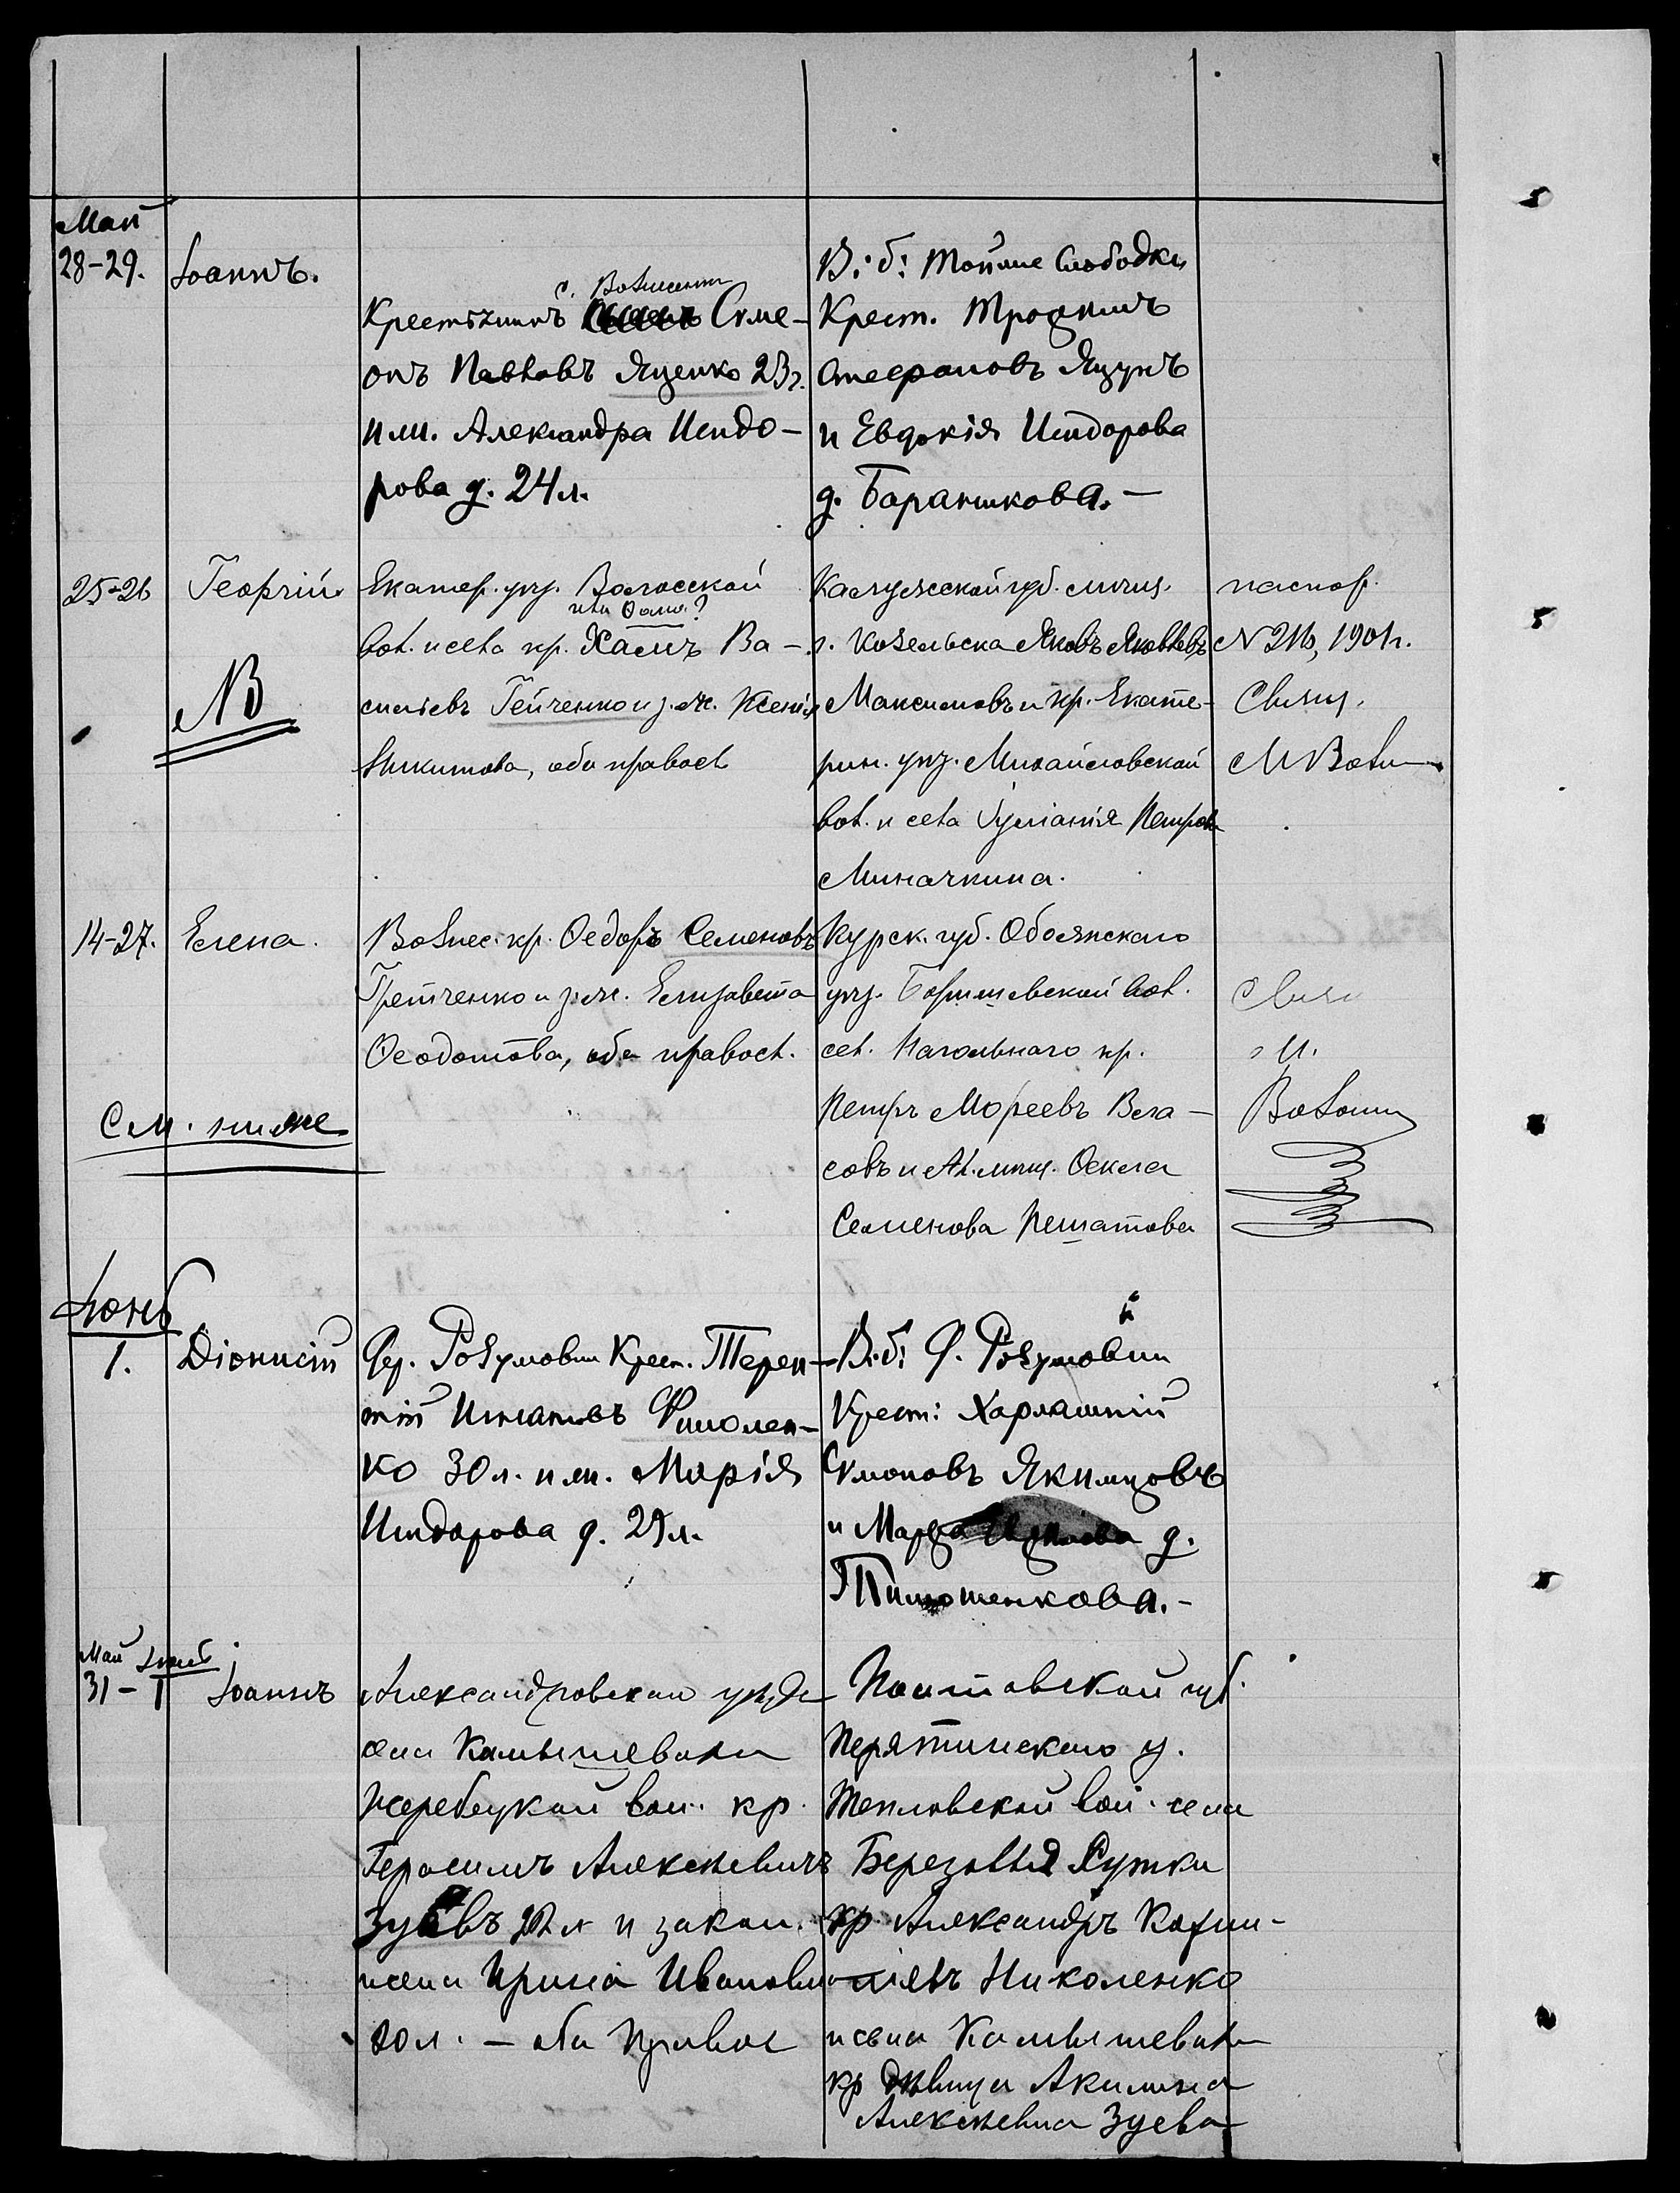 Май
28-29.
Іоаннъ.
с. Вознесенки
Крестьянинъ Симе-
онъ Павловъ Яценко 23 г.
и ж. Александра Исидо-
рова д. 24 л.
В: б: Тойже Слободки
Крест. Трофимъ
Стефановъ Яцунъ
и Евдокія Исидорова
д. Баранникова.-
25-26
Георгій
NB
Екатер. уѣз. Волосской
или Ѳома?
вол. и села кр. Хамъ Ва-
сильевъ Гейченко и з. ж. Ксенія
Никитова, оба правосл
Калужской губ. мѣщ.
г. Козельска Яковъ Яковлевъ
Максимовъ и кр. Екате-
рин. уѣз. Михайловской
вол. и села Іуліанія Петрова
Миначкина.
паспор.
N 216, 1901 г.
Свящ.
М Возн
14-27.
Елена.
См. ниже
Вознес. кр. Ѳедоръ Семеновъ
Гретченко и з. ж. Елизавета
Ѳеодотова, оба правосл.
Курск. губ. Обоянскаго
уѣз. Боришевской вол.
сел. Нагольнаго кр.
Петръ Мореевъ Вла-
совъ и Ал. мѣщ. Ѳекла
Семенова Решатова
Свящ
М.
Іюнь
1.
Діонисій
Дер. Розумовки Крест. Терен-
тій Игнатовъ Фимолен-
ко 30 л. и ж. Марія
Исидорова д. 29 л.
В: б: д. Розумовки
Крест: Харлампій
Симоновъ Якимцовъ
и Марѳа д.
Тимошенкова.-
Май Іюнь
31 - 1
Іоаннъ
Александровскаго уѣзда
села Камышевахи
Жеребецкой вол. кр.
Герасимъ Алексѣевичъ
Зуевъ 22 л и закон.
жена Ирина Ивановна
20 л. - оба Правос
Полтавской губ.
Перятинскаго у.
Тепловской вол. села
Березовыя Лутки
кр Александръ Корни-
ліевъ Николенко
и села Камышевахи
кр дѣвица Акилина
Алексѣевна Зуева